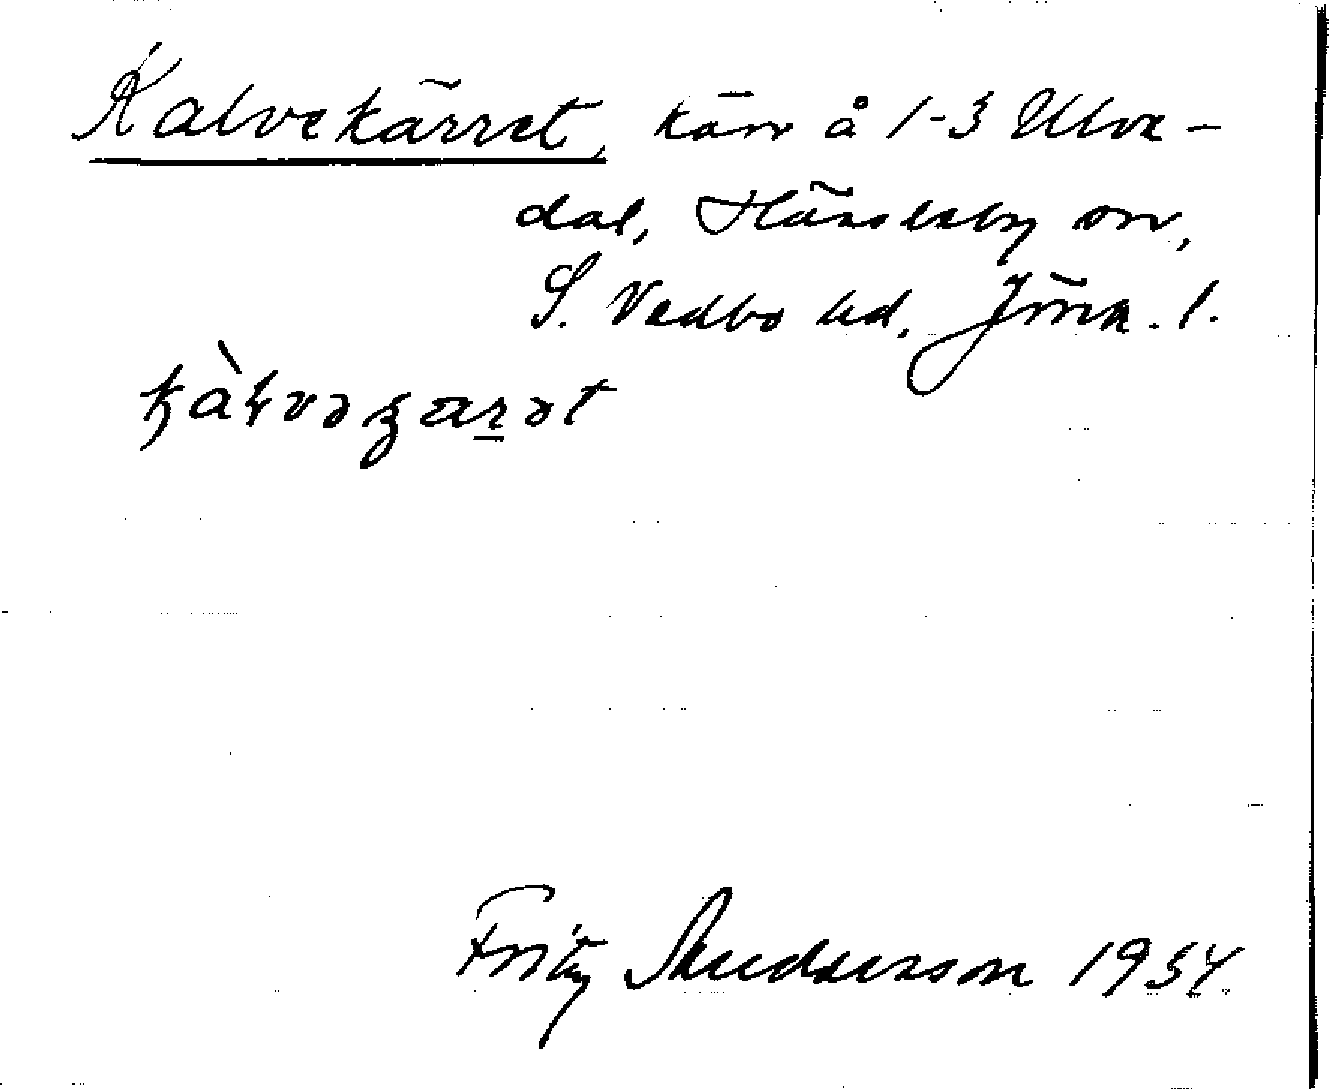 Kalvekärret, kärr å 1-3 Ulve-
dal, Hässleby sn,
S. Vedbo hd, Jönk. l.
Fritz Andersson 1954